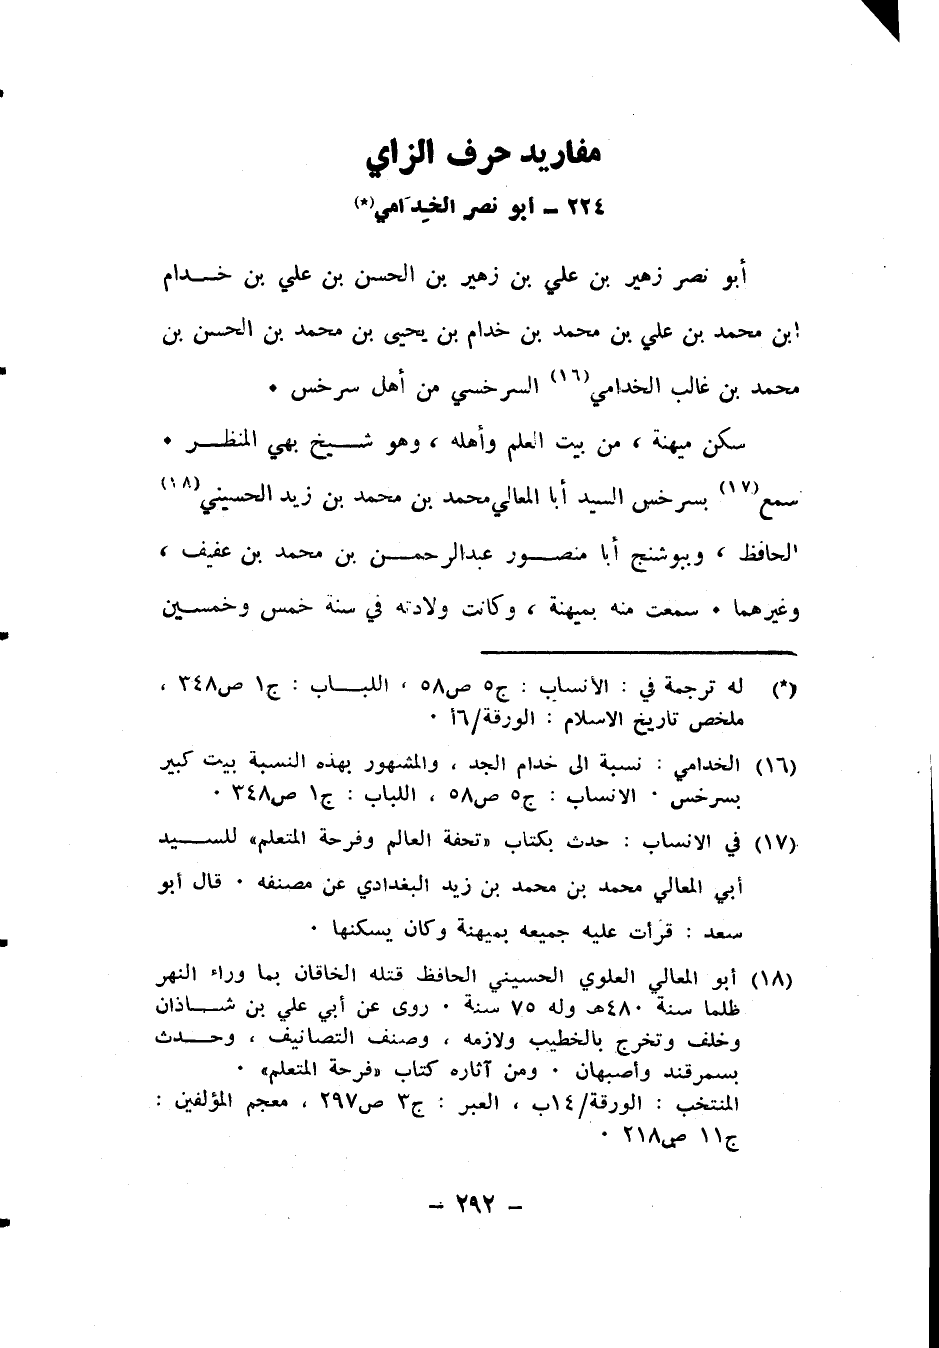 مفاريد حرف الزاي
٢٢٤ ــ أبو نصر الخِدَامي(*)
أبو نصر زهير بن علي بن زهير بن الحسن بن علي بن خـــدام
ابن محمد بن علي بن محمد بن خدام بن يحيى بن محمد بن الحسن بن
محمد بن غالب الخدامي(١٦) السرخسي من أهل سرخس ٠
سكن ميهنة ، من بيت العلم وأهله ، وهو شـــيخ بهي المنظـــر ٠
سمع(١٧) بسرخس السيد أبا المعالي محمد بن محمد بن زيد الحسيني(١٨)
الحافظ ، وببوشنج أبا منصـــور عبدالرحمـــن بن محمد بن عفيف ،
وغيرهما ٠ سمعت منه بميهنة ، وكانت ولادته في سنة خمس وخمســين
(*) له ترجمة في : الأنساب : ج٥ ص٥٨ ، اللبـــاب : ج١ ص٣٤٨ ،
ملخص تاريخ الاسلام : الورقة/٦أ ٠
(١٦) الخدامي : نسبة الى خدام الجد ، والمشهور بهذه النسبة بيت كبير
بسرخس ٠ الانساب : ج٥ ص٥٨ ، اللباب : ج١ ص٣٤٨ ٠
(١٧) في الانساب : حدث بكتاب «تحفة العالم وفرحة المتعلم» للســـيد
أبي المعالي محمد بن محمد بن زيد البغدادي عن مصنفه ٠ قال أبو
سعد : قرأت عليه جميعه بميهنة وكان يسكنها ٠
(١٨) أبو المعالي العلوي الحسيني الحافظ قتله الخاقان بما وراء النهر
ظلما سنة ٤٨٠هـ وله ٧٥ سنة ٠ روى عن أبي علي بن شـــاذان
وخلف وتخرج بالخطيب ولازمه ، وصنف التصانيف ، وحـــدث
بسمرقند وأصبهان ٠ ومن آثاره كتاب «فرحة المتعلم» ٠
المنتخب : الورقة/١٤ب ، العبر : ج٣ ص٢٩٧ ، معجم المؤلفين :
ج١١ ص٢١٨ ٠
– ٢٩٢ –